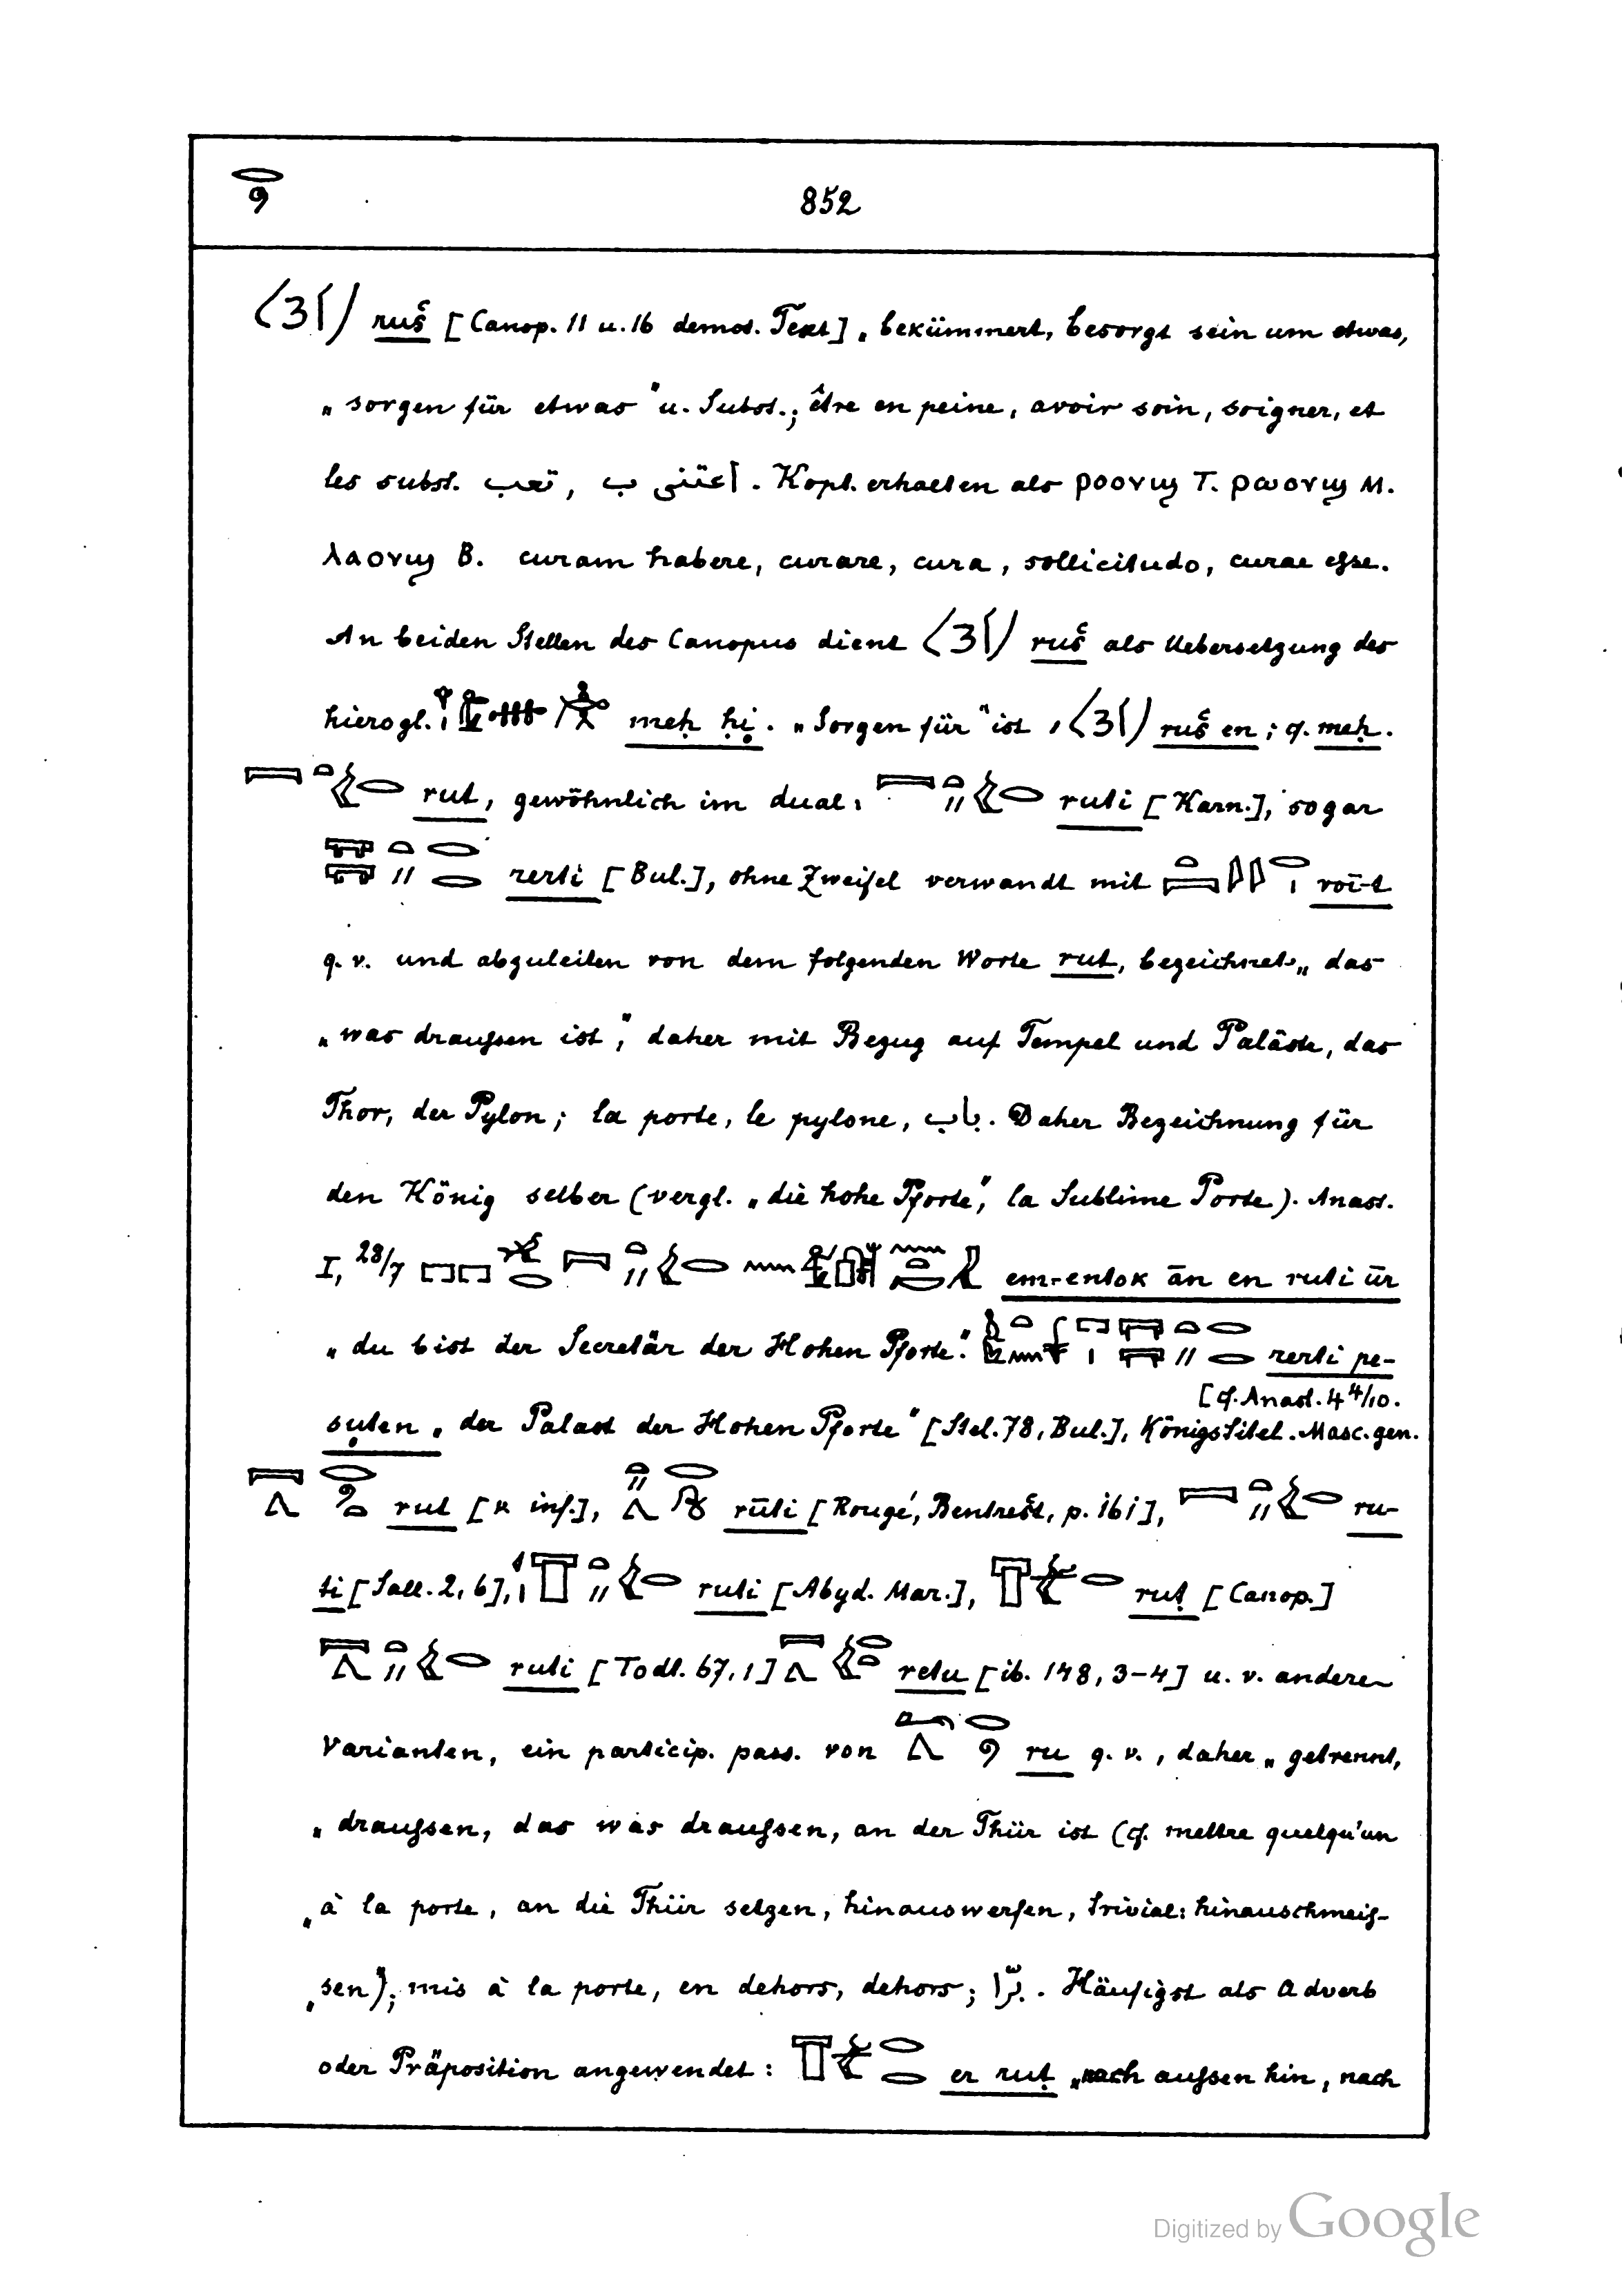 852
ruš [Canop. 11 u. 16 demot. Text] „bekümmert, besorgt sein um etwas,
„sorgen für etwas" u. Subst.; être en peine, avoir soin, soigner, et
les subst. تعب, اعتنى ب. Kopt. erhalten als ⲣⲟⲟⲩϣ T. ⲣⲱⲟⲩϣ M.
ⲗⲁⲟⲩϣ B. curam habere, curare, cura, sollicitudo, curae esse.
An beiden Stellen des Canopus dient ruš als Uebersetzung des
hierogl. meḥ ḥi̱. „Sorgen für" ist ruš en; cf. meḥ.
rut, gewöhnlich im dual: ruti [Karn.], sogar
rerti [Bul.], ohne Zweifel verwandt mit roī-t
q. v. und abzuleiten von dem folgenden Worte rut, bezeichnet „das
„was draußen ist", daher mit Bezug auf Tempel und Paläste, das
Thor, der Pylon; la porte, le pylone, باب. Daher Bezeichnung für
den König selber (vergl. „die hohe Pforte", la Sublime Porte). Anast.
I, 28/7 em-entok ān en ruti ūr
„du bist der Secretär der Hohen Pforte." rerti pe-
[cf. Anast. 4 4/10.
suten „der Palast der Hohen Pforte" [Stel. 78, Bul.], Königstitel. Masc. gen.
rut [κ inf.], rūti [Rougé, Bentrešt, p. 161], ru-
ti [Sall. 2, 6], ruti [Abyd. Mar.], ruṭ [Canop.]
ruti [Todt. 67, 1] retu [ib. 148, 3-4] u. v. andere
Varianten, ein particip. pass. von ru q. v., daher „getrennt,
„draußen, das was draußen, an der Thür ist (cf. mettre quelqu'un
„à la porte, an die Thür setzen, hinauswerfen, trivial: hinauschmeiß-
„sen)"; mis à la porte, en dehors, dehors; برّا. Häufigst als Adverb
oder Präposition angewendet: er ruṭ „nach außen hin, nach
Digitized by Google